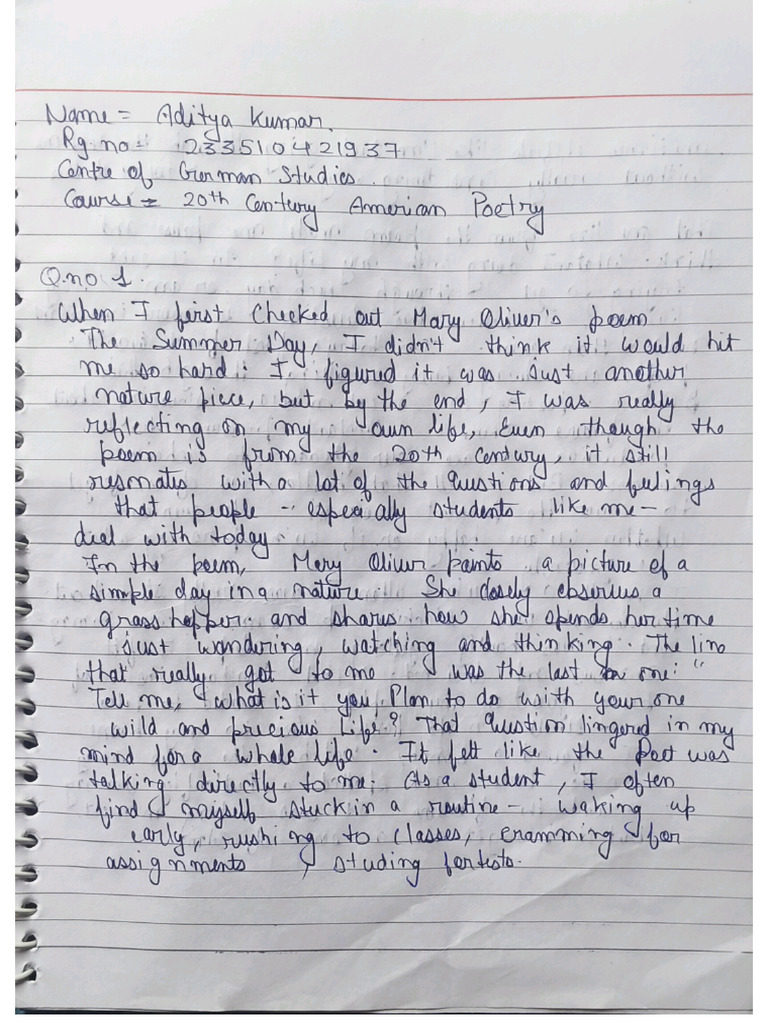 Name = Aditya Kumar.
Rg no = 233510421937
Centre of German Studies.
Course = 20th Century American Poetry
Q.no 1
When I first checked out Mary Oliver's poem
The Summer Day, I didn't think it would hit
me so hard. I figured it was just another
nature piece, but by the end, I was really
reflecting on my own life, Even though the
poem is from the 20th century, it still
resonates with a lot of the questions and feelings
that people - especially students like me -
deal with today.
In the poem, Mary Oliver paints a picture of a
simple day in a nature. She closely observes a
grasshopper and shares how she spends her time
just wandering, watching and thinking. The line
that really got to me was the last one: "
Tell me, what is it you Plan to do with your one
wild and precious Life? That question lingered in my
mind for a whole life. It felt like the Poet was
talking directly to me. As a student, I often
find myself stuck in a routine - waking up
early, rushing to classes, cramming for
assignments, studing for tests.